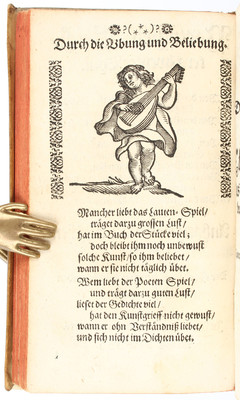 ?(⁎⁎⁎)?
Durch die Vbung und Beliebung.
Mancher liebt das Lauten-Spiel/
träget darzu grossen Lust/
hat im Buch der Stücke viel;
doch bleibt ihm noch unbewust
solche Kunst/ so ihm beliebet/
wann er sie nicht täglich übet.
Wem liebt der Poeten Spiel/
und trägt darzu guten Lust/
lieset der Gedichte viel/
hat den Kunstgrieff nicht gewust/
wann er ohn Verständniß liebet/
und sich nicht im Dichten übet.